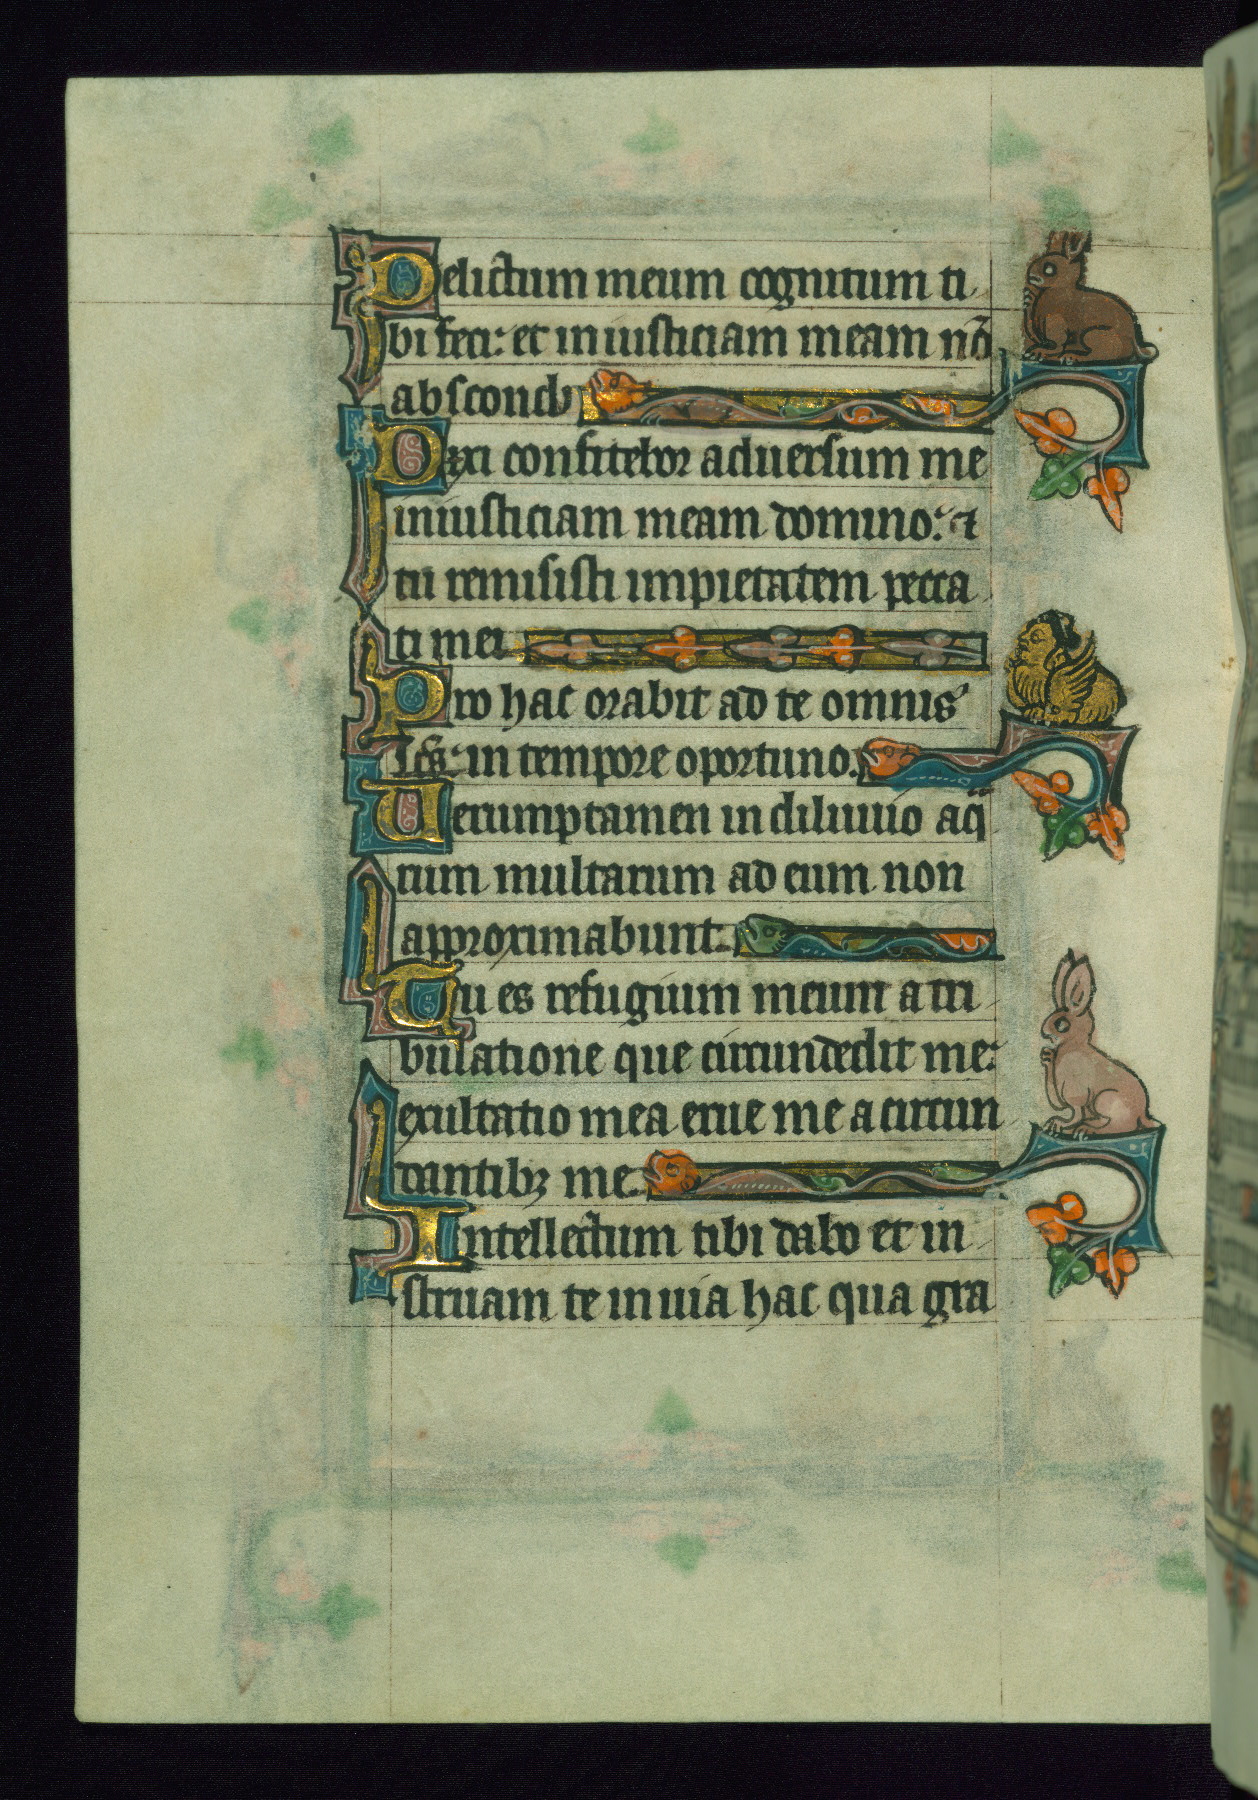 Delictum meum cognitum ti
bi feci: et iniusticiam meam nō
abscondi
Dixi confitebor aduersum me
iniusticiam meam domino: ⁊
tu remisisti impietatem pecca
ti mei
Pro hac orabit ad te omnis
sc̄s: in tempore oportuno.
Uerumptamen in diluuio aq̄
rum multarum ad eum non
approximabunt.
Tu es refugium meum a tri
bulatione que circumdedit me:
exultatio mea erue me a circun
dantibꝫ me
Intellectum tibi dabo et in
struam te in uia hac qua gra